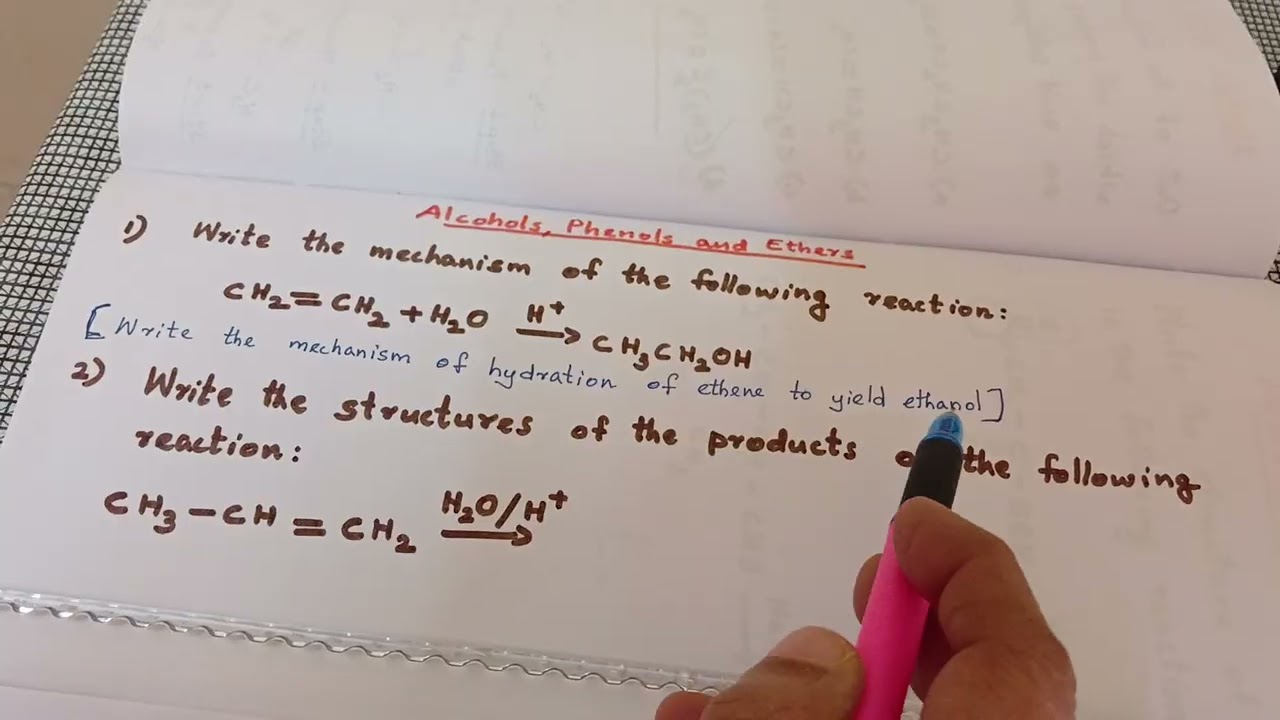 Alcohols, Phenols and Ethers
1) Write the mechanism of the following reaction:
CH₂=CH₂ + H₂O H⁺→ CH₃CH₂OH
[Write the mechanism of hydration of ethene to yield ethanol]
2) Write the structures of the products the following
reaction:
CH₃-CH=CH₂ H₂O/H⁺→